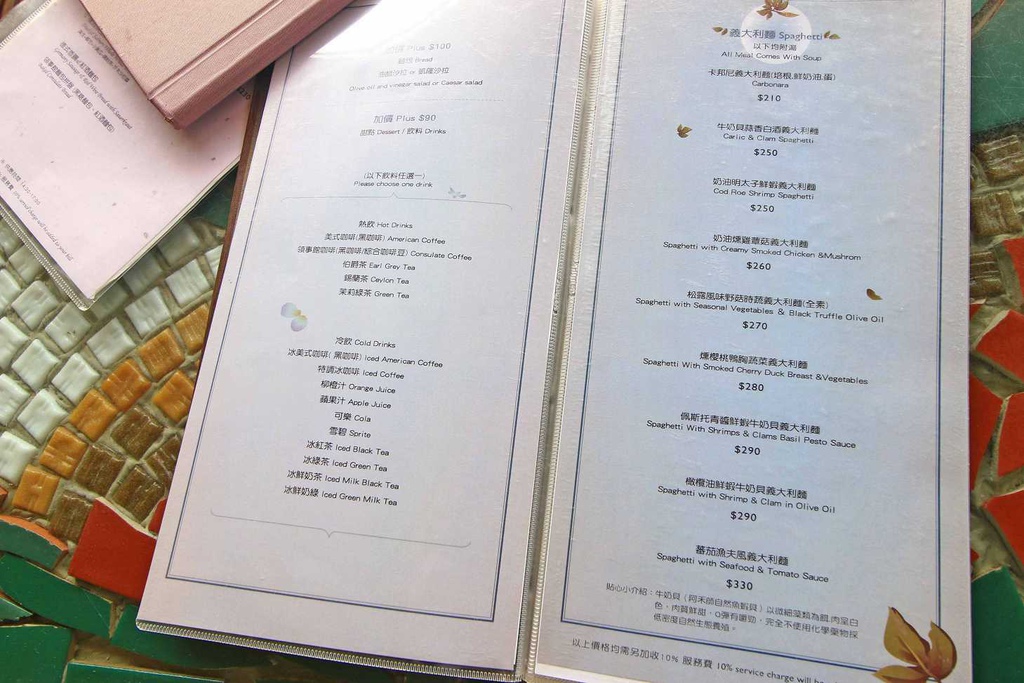 Plus $100
Bread
油醋沙拉 or 凱薩沙拉
Olive oil and vinegar salad or Caesar salad
加價 Plus $90
甜點 Dessert / 飲料 Drinks
(以下飲料任選一)
Please choose one drink
熱飲 Hot Drinks
美式咖啡(黑咖啡) American Coffee
領事館咖啡(黑咖啡/綜合咖啡豆) Consulate Coffee
伯爵茶 Earl Grey Tea
錫蘭茶 Ceylon Tea
茉莉綠茶 Green Tea
冷飲 Cold Drinks
冰美式咖啡( 黑咖啡) Iced American Coffee
特調冰咖啡 Iced Coffee
柳橙汁 Orange Juice
蘋果汁 Apple Juice
可樂 Cola
雪碧 Sprite
冰紅茶 Iced Black Tea
冰綠茶 Iced Green Tea
冰鮮奶茶 Iced Milk Black Tea
冰鮮奶綠 Iced Green Milk Tea
義大利麵 Spaghetti
以下均附湯
All Meal Comes With Soup
卡邦尼義大利麵(培根,鮮奶油,蛋)
Carbonara
$210
牛奶貝蒜香白酒義大利麵
Carlic & Clam Spaghetti
$250
奶油明太子鮮蝦義大利麵
Cod Roe Shrimp Spaghetti
$250
奶油燻雞蕈菇義大利麵
Spaghetti with Creamy Smoked Chicken &Mushrom
$260
松露風味野菇時蔬義大利麵(全素)
Spaghetti with Seasonal Vegetables & Black Truffle Olive Oil
$270
燻櫻桃鴨胸蔬菜義大利麵
Spaghetti With Smoked Cherry Duck Breast &Vegetables
$280
佩斯托青醬鮮蝦牛奶貝義大利麵
Spaghetti with Shrimps & Clams Basil Pesto Sauce
$290
橄欖油鮮蝦牛奶貝義大利麵
Spaghetti with Shrimp & Clam in Olive Oil
$290
蕃茄漁夫風義大利麵
Spaghetti with Seafood & Tomato Sauce
$330
貼心小介紹：牛奶貝（阿禾師自然魚蝦貝）以微細藻類為餌,肉呈白
色，肉質鮮甜，Q彈有嚼勁，完全不使用化學藥物採
低密度自然生態養殖。
以上價格均需另加收10% 服務費 10% service charge will be